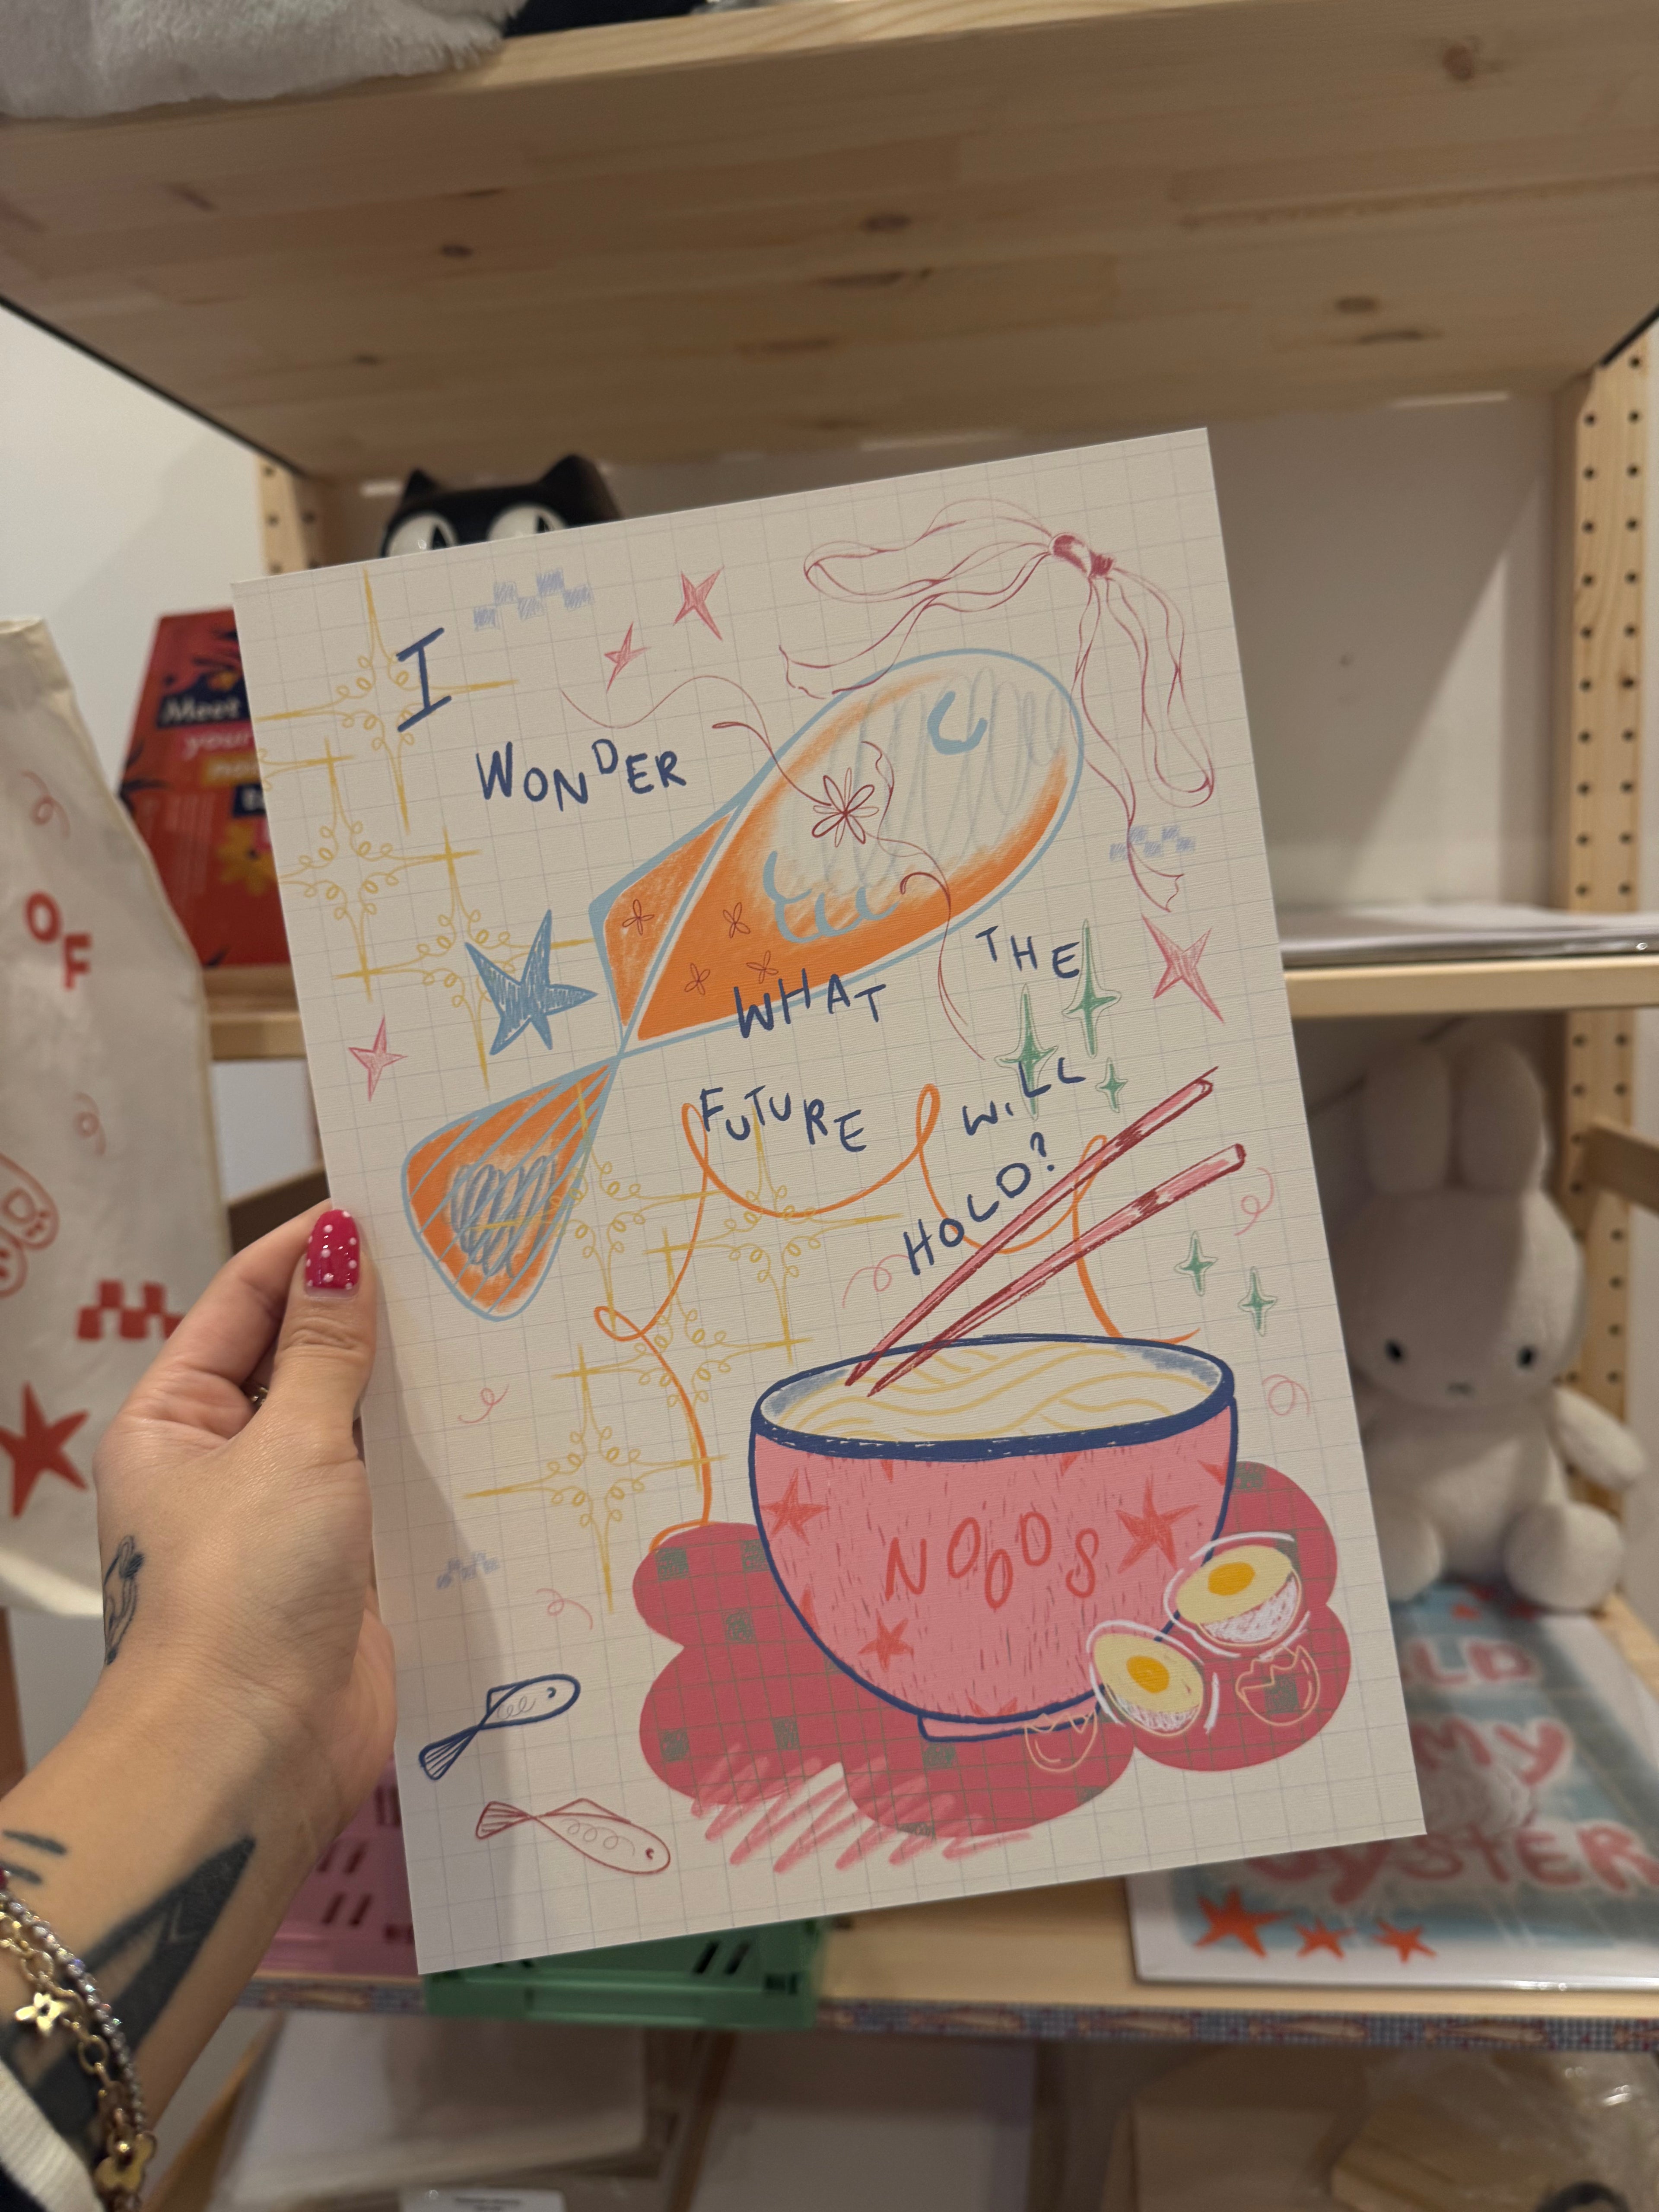 I
WONDER
WHAT THE
FUTURE WILL
HOLD?
NOODS
Meet
your
OF
MY
OYSTER